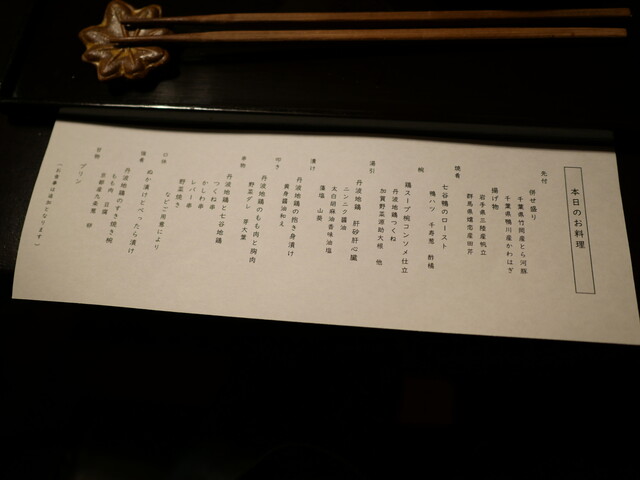 本日のお料理
先付
併せ盛り
千葉県竹岡産とら河豚
千葉県鴨川産かわはぎ
揚げ物
岩手県三陸産帆立
群馬県嬬恋産田芹
焼肴
七谷鴨のロースト
鴨ハツ 千寿葱 酢橘
椀
鶏スープ椀コンソメ仕立
丹波地鶏つくね
加賀野菜源助大根 他
湯引
丹波地鶏 肝砂肝心臓
ニンニク醤油
太白胡麻油香味油塩
漬け
丹波地鶏の抱き身漬け
藻塩 山葵
叩き
丹波地鶏のもも肉と胸肉
黄身醤油和え
串物
野菜ダレ 芽大葉
丹波地鶏と七谷地鶏
つくね串
かしわ串
レバー串
野菜焼き
などご用意により
ぬか漬けとべったら漬け
丹波地鶏のすき焼き椀
もも肉 豆腐
京都産九条葱 卵
甘物
プリン